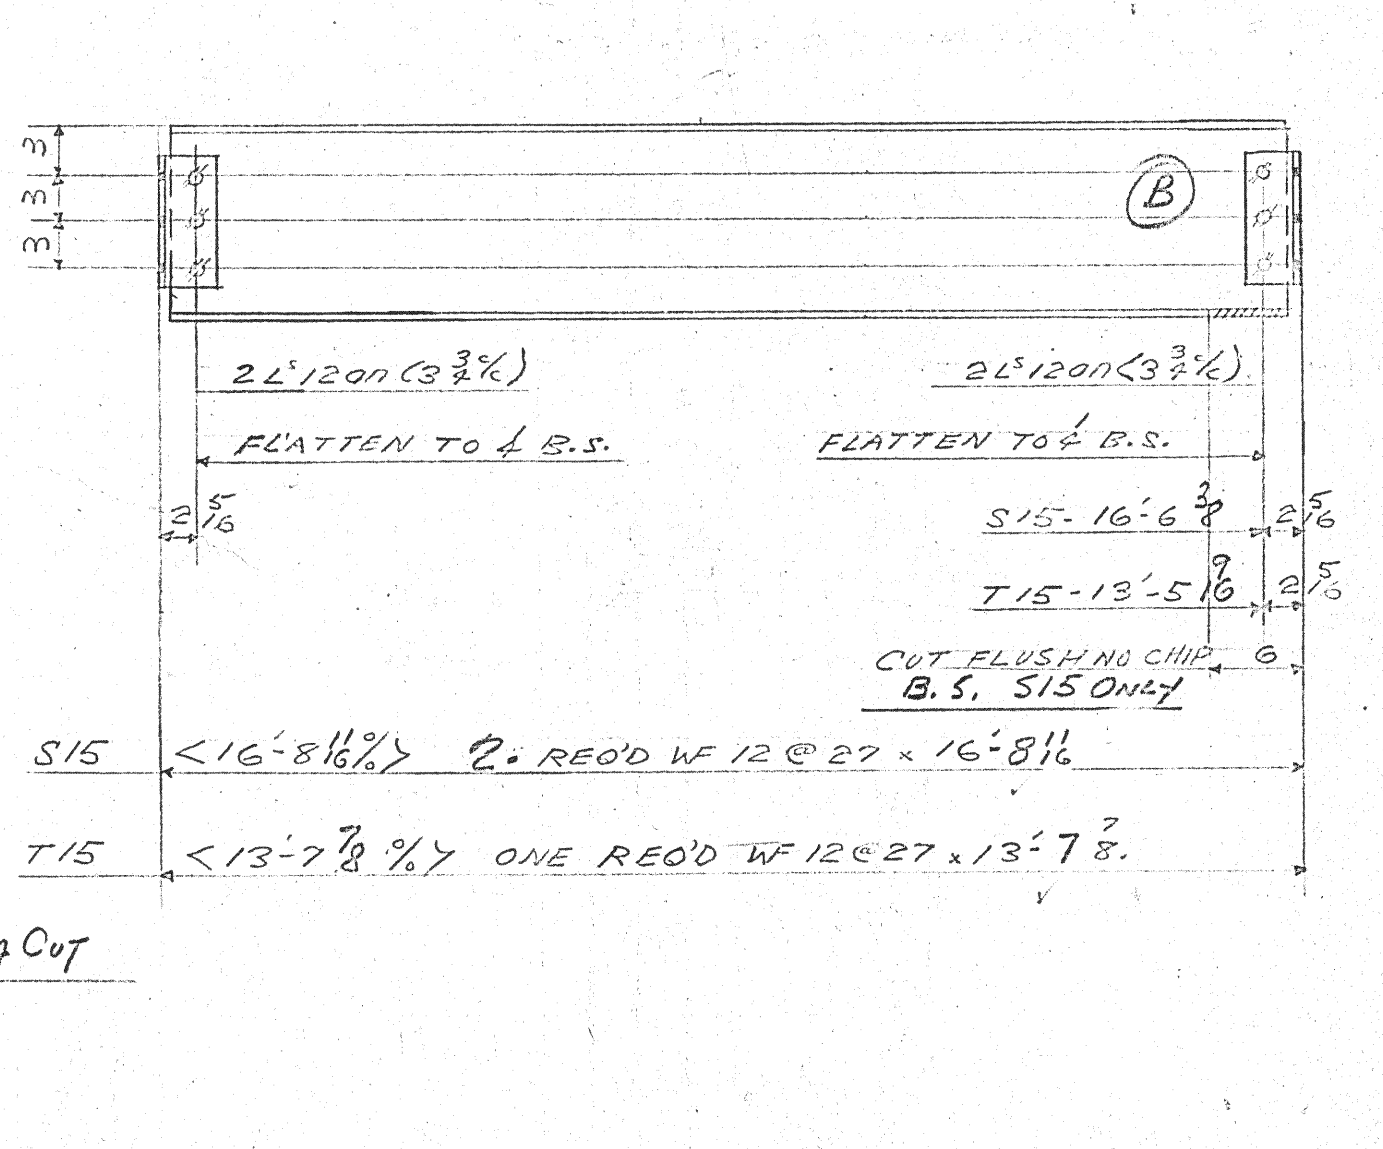 3
3
3
B
2 Ls 12an (3 3/4 c/c)
2 Ls 12an (3 3/4 c/c)
FLATTEN TO ¢ B.S.
FLATTEN TO ¢ B.S.
2 5/16
S15 - 16'-6 3/8
2 5/16
T15 - 13'-5 9/16
2 5/16
CUT FLUSH NO CHIP
6
B.S. S15 ONLY
S15 <16'-8 11/16 o/o> 2. REQ'D WF 12 @ 27 x 16'-8 11/16
T15 <13'-7 7/8 o/o> ONE REQ'D WF 12 @ 27 x 13'-7 7/8.
CUT